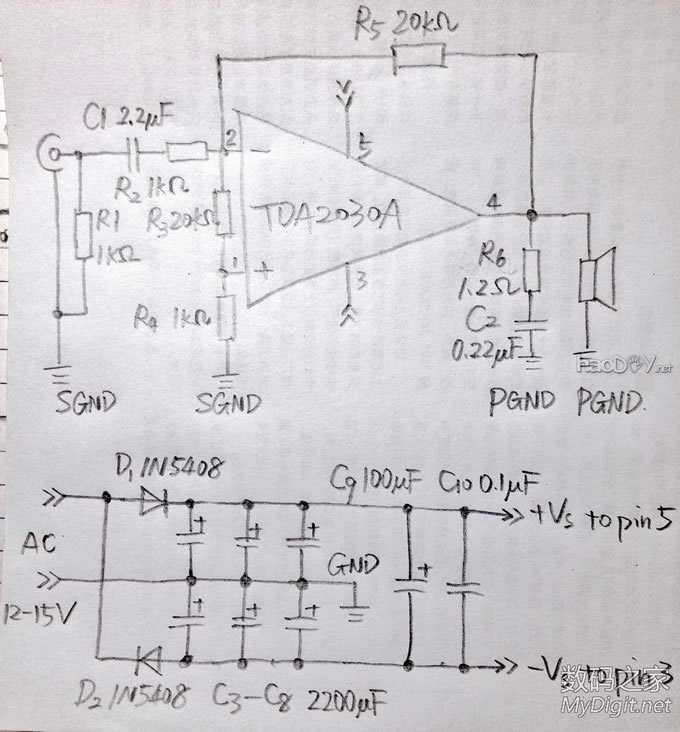 R5 20kΩ
C1 2.2μF
V
2
5
R2 1kΩ
R1
1kΩ
R3 20kΩ
TDA2030A
4
1
+
3
R4 1kΩ
R6
1.2Ω
C2
0.22μF
HaoDIY.net
SGND
SGND
PGND
PGND.
D1 IN5408
C9 100μF
C10 0.1μF
+Vs to pin 5
AC
GND
12-15V
-Vs to pin 3
D2 IN5408
C3-C8 2200μF
数码之家
MyDigit.net